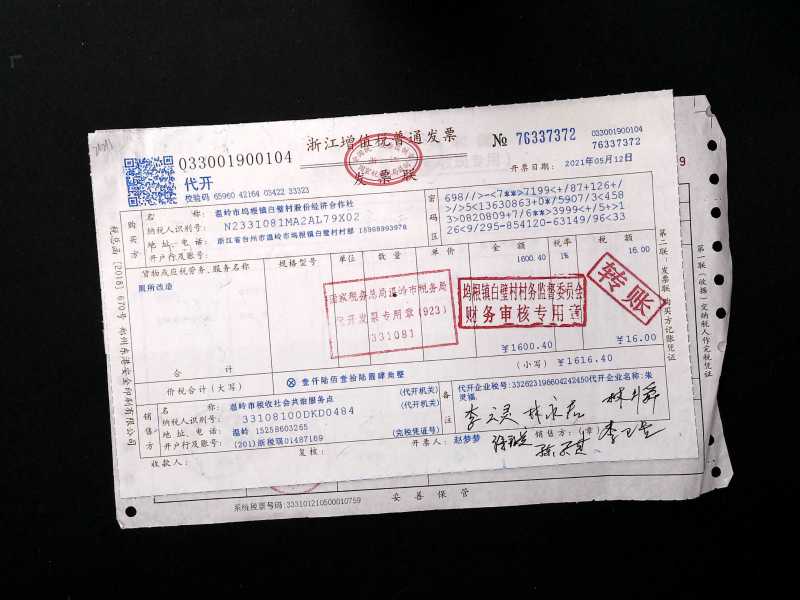 浙江增值税普通发票
发票联
033001900104
№ 76337372
033001900104
76337372
代开
校验码 65960 42164 03422 33323
开票日期：2021年05月12日
购买方
名称：温岭市坞根镇白璧村股份经济合作社
纳税人识别号：N2331081MA2AL79X02
地址、电话：浙江省台州市温岭市坞根镇白璧村村部 15968993978
开户行及账号：
密码区
698//>-<7**>7199<+/87+126+/
>/>5<13630863+0*/5907/3<458
3>0820809+7/6**>3999<+/5+>1
26<9/295-854120-63149/96<33
货物或应税劳务、服务名称 规格型号 单位 数量 单价 金额 税率 税额
厕所改造 1600.40 1% 16.00
国家税务总局温岭市税务局
代开发票专用章(923)
331081
坞根镇白璧村村务监督委员会
财务审核专用章
转账
合计 ￥1600.40 ￥16.00
价税合计（大写） ⊗壹仟陆佰壹拾陆圆肆角整 （小写）￥1616.40
销售方
名称：温岭市税收社会共治服务点 （代开机关）
纳税人识别号：33108100DKD0484 （代开机关）
地址、电话：温岭 15258603265
开户行及账号：(201)浙税琪01487169 （完税凭证号）
备注
代开企业税号：332623196604242450代开企业名称：朱
灵福
收款人：
复核：
开票人：赵梦梦
销售方：（章）
税总函〔2018〕670号 郑州东港安全印刷有限公司
第二联：发票联 购买方记账凭证
第一联（收据）交纳税人作完税凭证
系统税票号码：333101210500010759
妥善保管
9